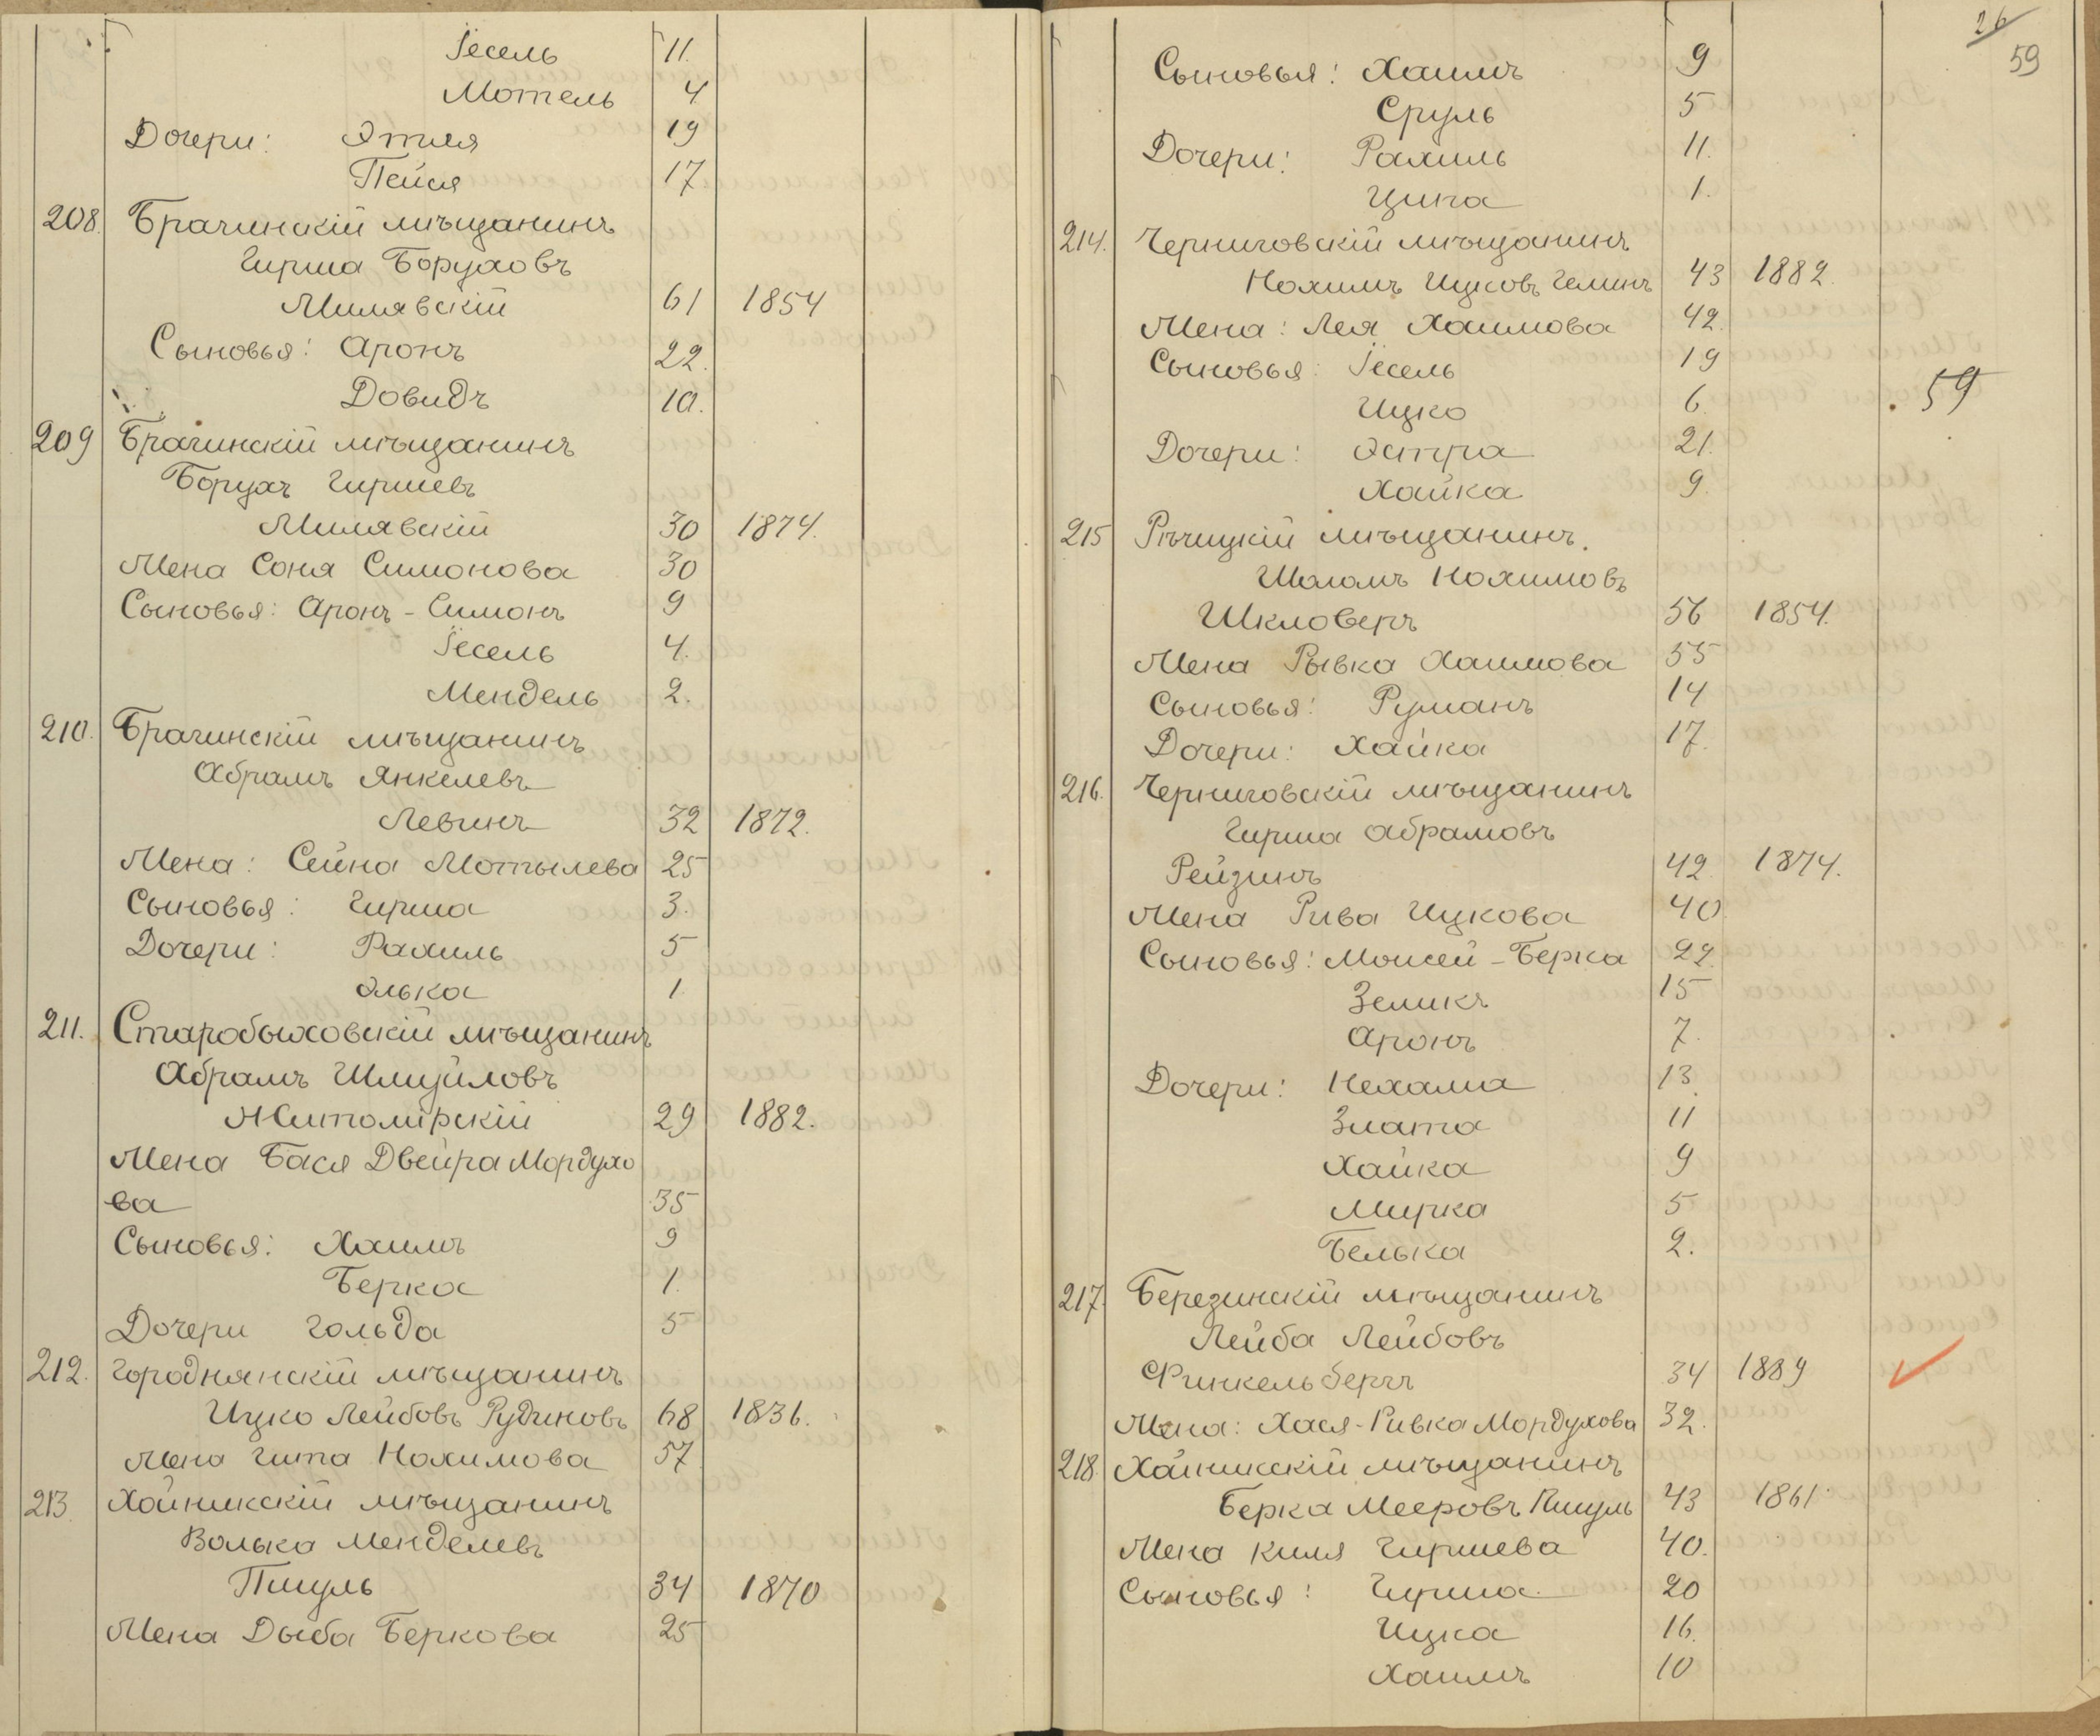 Іесель 11.
Мотель 4
Дочери: Этля 19
Пейся 17
208. Брагинскій мѣщанинъ
Гирша Боруховъ
Милявскій 61 1854
Сыновья: Аронъ 22.
Довидъ 10.
209 Брагинскій мѣщанинъ
Борухъ Гиршевъ
Милявскій 30 1874.
Жена Соня Симонова 30
Сыновья: Аронъ-Симонъ 9
Іесель 4.
Мендель 2.
210. Брагинскій мѣщанинъ
Абрамъ Янкелевъ
Левинъ 32 1872.
Жена: Сейна Мотылева 25
Сыновья: Гирша 3.
Дочери: Рахиль 5
Элька 1
211. Старобыховскій мѣщанинъ
Абрамъ Шмуйловъ
Житомірскій 29 1882.
Жена Бася Двейра Мордухо
ва 35
Сыновья: Хаимъ 9
Берка 1.
Дочери Гольда 5
212. Городнянскій мѣщанинъ
Ицко Лейбовъ Рудиновъ 68 1836.
Жена Гита Нохимова 57
213. Хойникскій мѣщанинъ
Волька Менделевъ
Пищуль 34 1870
Жена Дыба Беркова 25
26
59
Сыновья: Хаимъ 9
Сруль 5
Дочери: Рахиль 11.
Ципа 1.
214. Черниговскій мѣщанинъ
Нохимъ Ицковъ Геминъ 43 1882.
Жена: Лея Хаимова 42.
Сыновья: Іесель 19
Ицко 6.
59
Дочери: Эстра 21.
Хайка 9.
215 Рѣчицкій мѣщанинъ.
Шоломъ Нохимовъ
Шкловеръ 56 1854.
Жена Рывка Хаимова 55
Сыновья: Руманъ 14
Дочери: Хайка 17.
216. Черниговскій мѣщанинъ
Гирша Абрамовъ
Рейзинъ 42. 1874.
Жена Рива Ицкова 40
Сыновья: Моисей-Берка 22.
Зеликъ 15
Аронъ 7.
Дочери: Нехама 13.
Злата 11
Хайка 9
Мирка 5
Белька 2.
217. Березинскій мѣщанинъ
Лейба Лейбовъ
Финкельбергъ 34 1889
Жена: Хася-Ривка Мордухова 32.
218. Хойникскій мѣщанинъ
Берка Мееровъ Пищуль 43 1861
Жена Киля Гиршева 40.
Сыновья: Гирша 20
Ицка 16.
Хаимъ 10